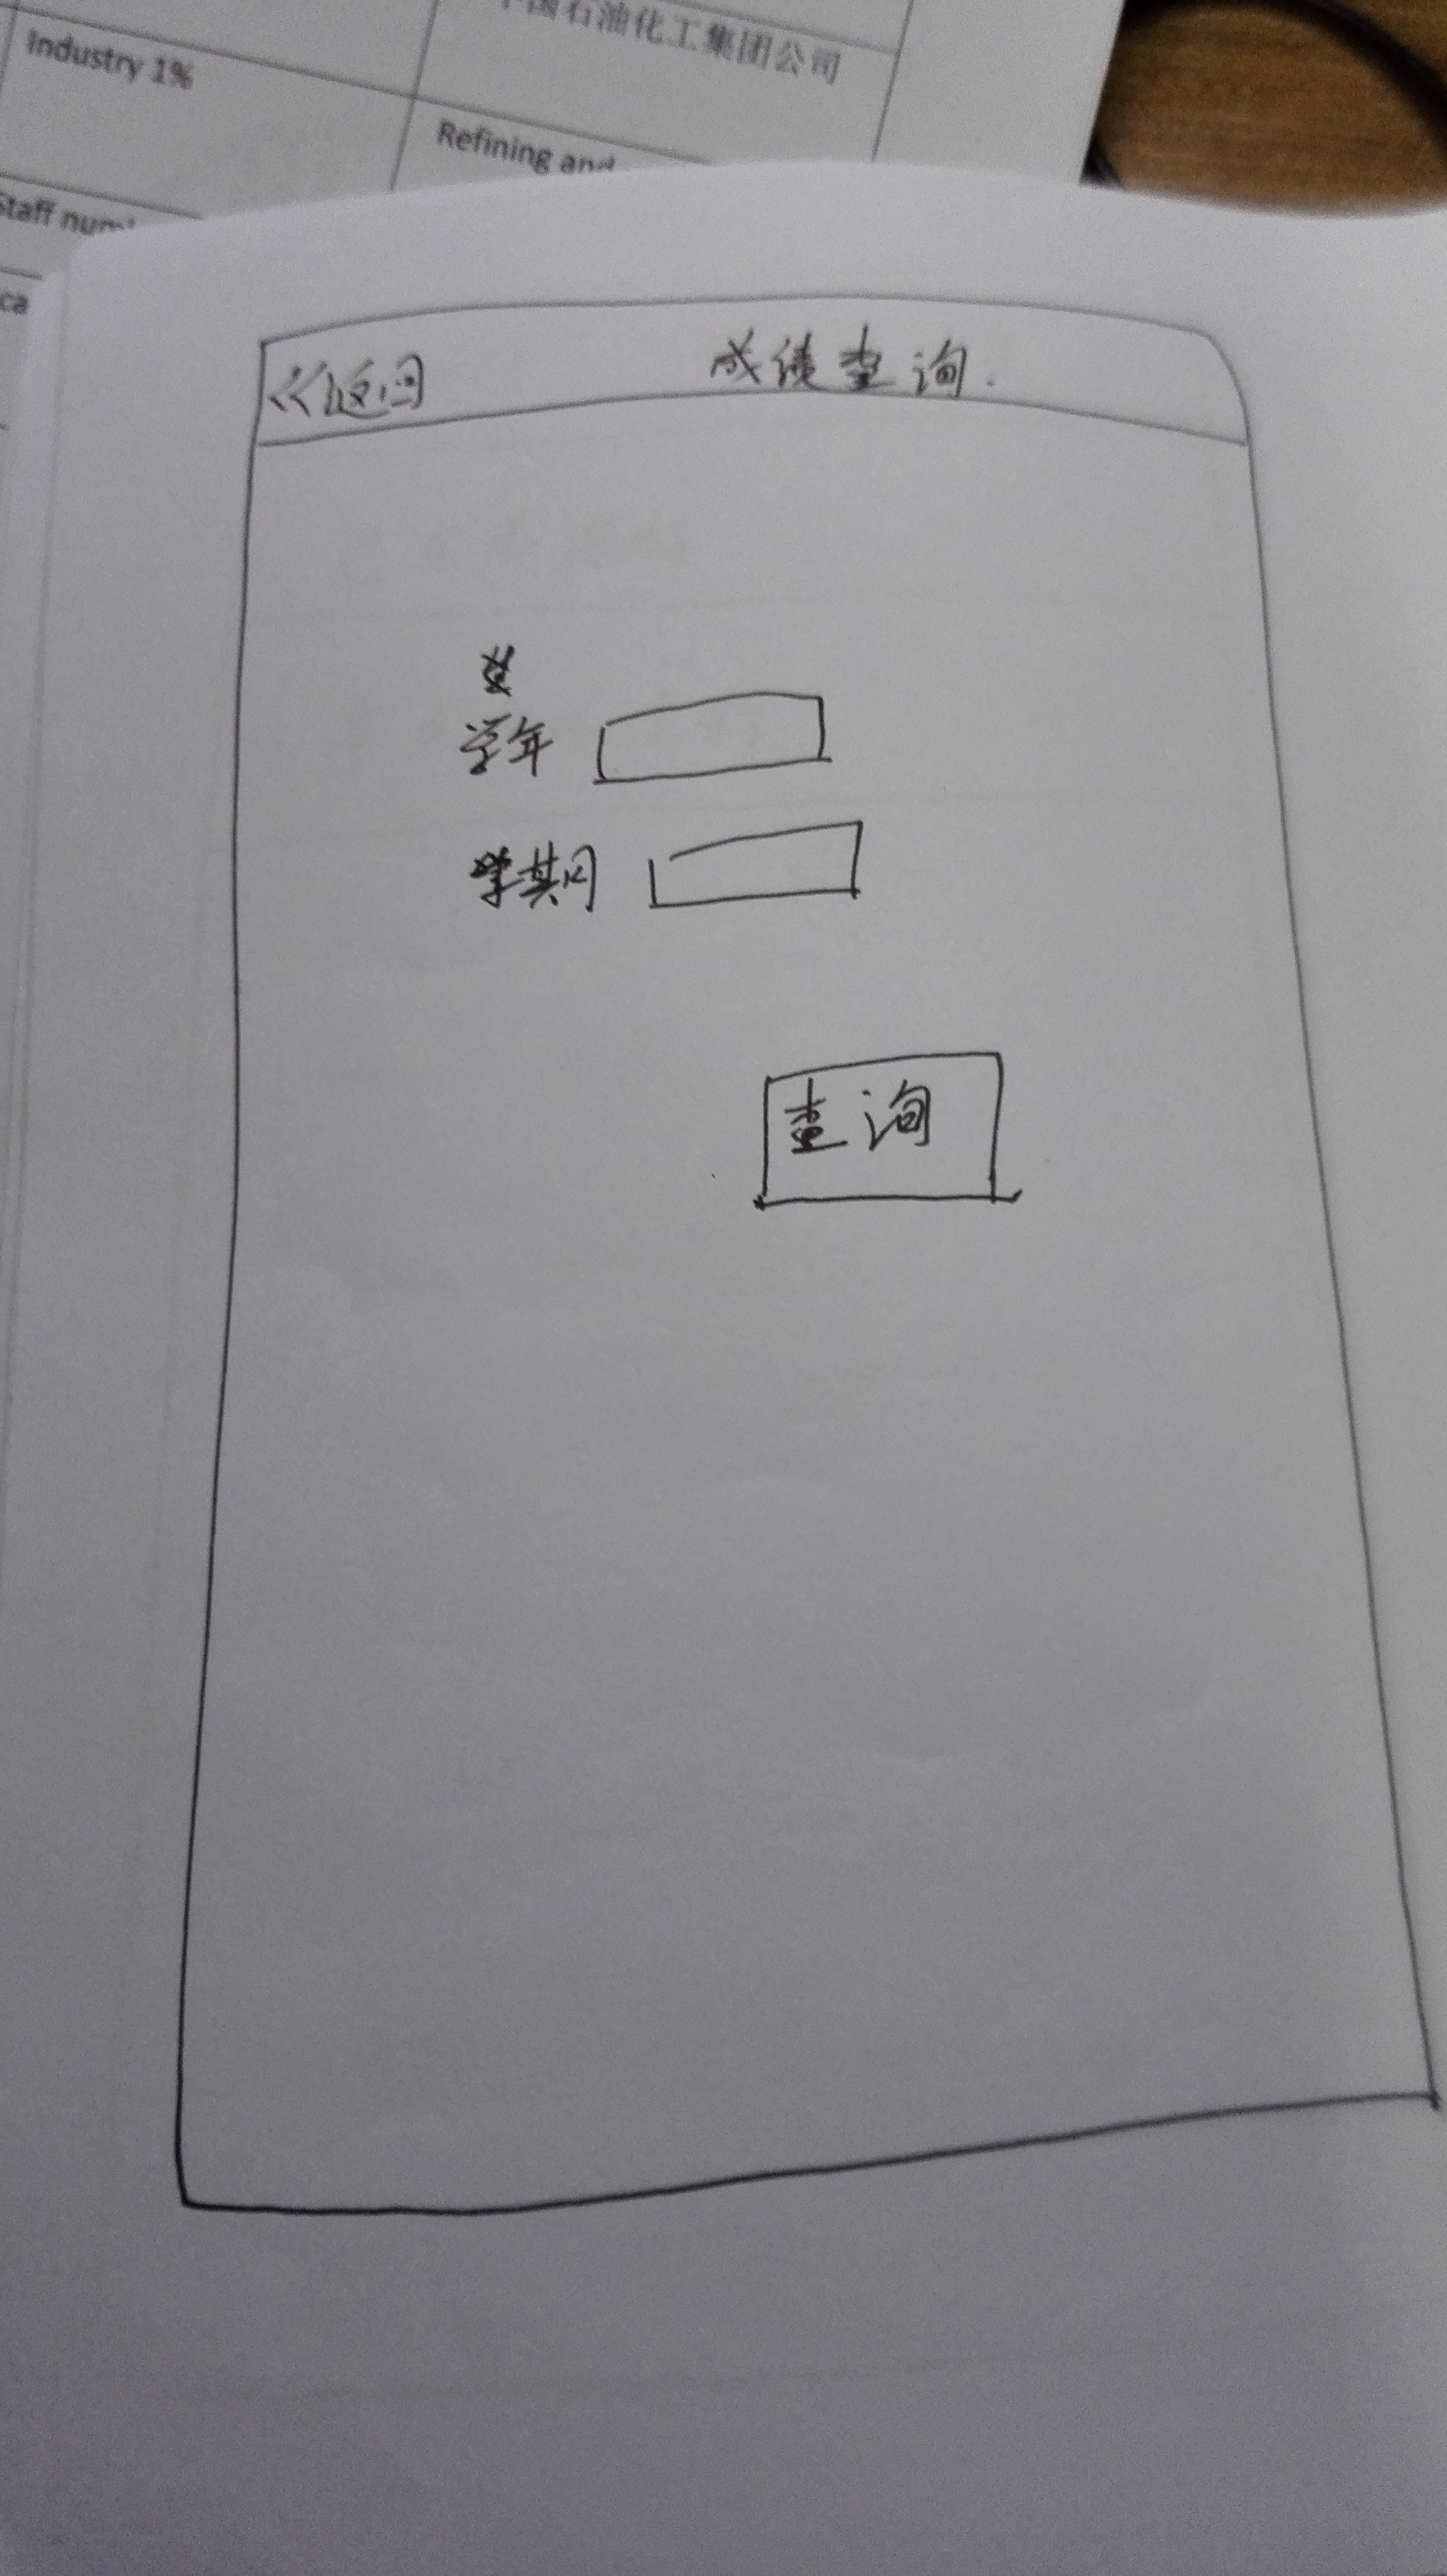 中国石油化工集团公司
Industry 1%
Refining and
Staff num
ca
<<返回 成绩查询.
学年
学期
查询